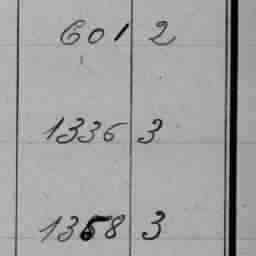 601 2
1336 3
1368 3